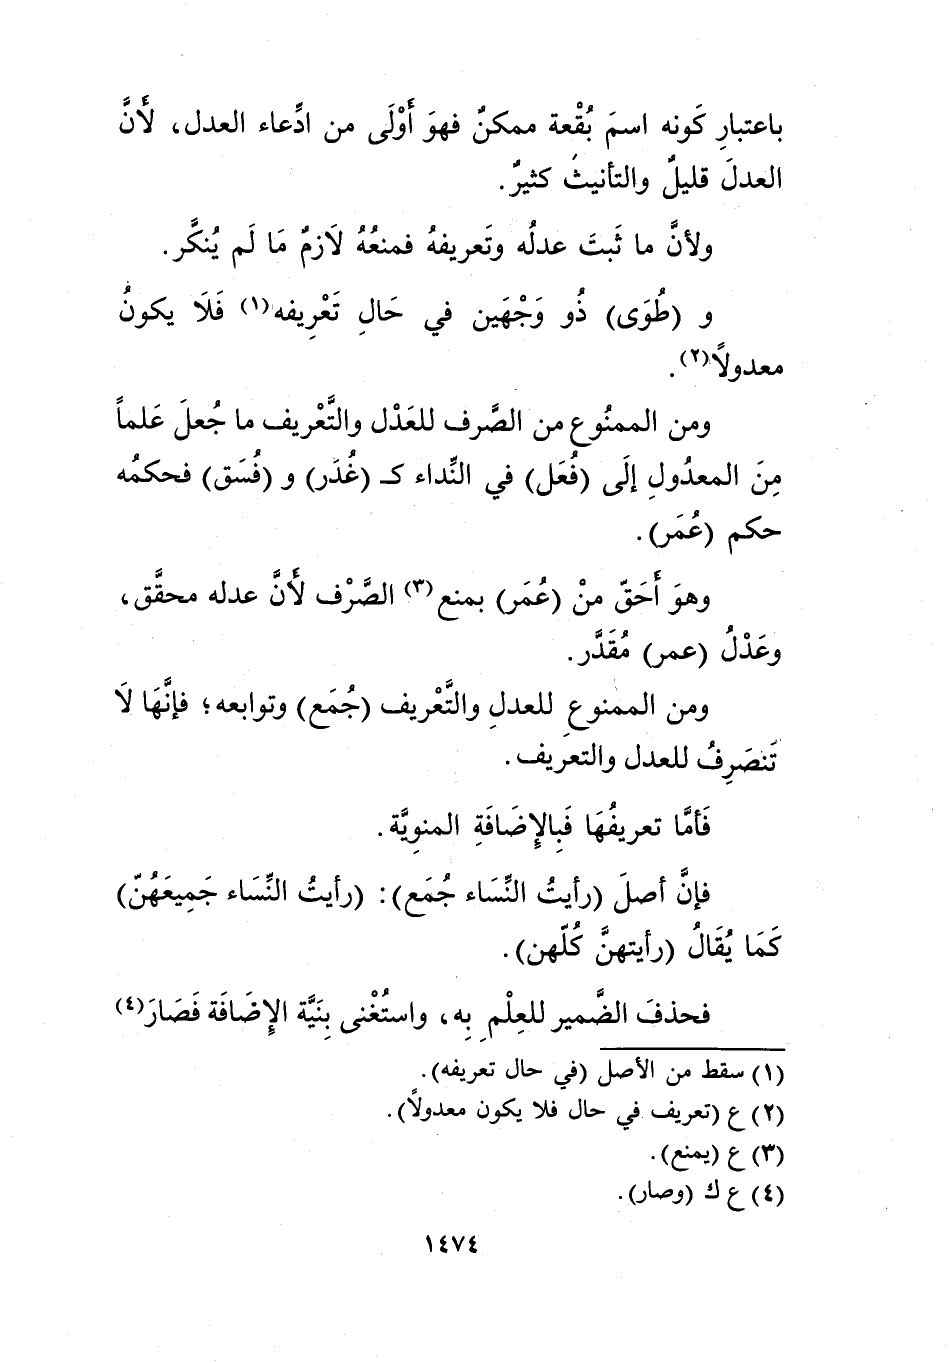 باعتبارِ كَونه اسمَ بُقْعة ممكنٌ فهوَ أَوْلَى من ادِّعاء العدل، لأَنَّ
العدلَ قليلٌ والتأنيثُ كثيرٌ.
ولأنَّ ما ثَبتَ عدلُه وتَعريفهُ فمنعُهُ لَازمٌ مَا لَم يُنكَّر.
و (طُوَى) ذُو وَجْهَين في حَالِ تَعْرِيفه(١) فَلَا يكونُ
معدولاً(٢).
ومن الممنُوع من الصَّرف للعَدْل والتَّعْريف ما جُعلَ عَلماً
مِنَ المعدُولِ إلَى (فُعَل) في النِّداء كـ (غُدَر) و (فُسَق) فحكمُه
حكم (عُمَر).
وهوَ أَحَقّ منْ (عُمَر) بمنع(٣) الصَّرْف لأَنَّ عدله محقَّق،
وعَدْلُ (عمر) مُقَدَّر.
ومن الممنوعِ للعدلِ والتَّعْريف (جُمَع) وتوابعه؛ فإنَّهَا لَا
تَنصَرِفُ للعدل والتعريف.
فَأمَّا تعريفُهَا فَبالإِضَافَةِ المنوِيَّة.
فإنَّ أصلَ (رأيتُ النِّسَاء جُمَع): (رأيتُ النِّسَاء جَمِيعَهُنّ)
كَمَا يُقَالُ (رأيتهنَّ كُلّهن).
فحذفَ الضَّمير للعِلْمِ بِه، واستُغْنى بِنَيَّة الإِضَافَة فَصَارَ(٤)
(١) سقط من الأصل (في حال تعريفه).
(٢) ع (تعريف في حال فلا يكون معدولاً).
(٣) ع (يمنع).
(٤) ع ك (وصار).
١٤٧٤